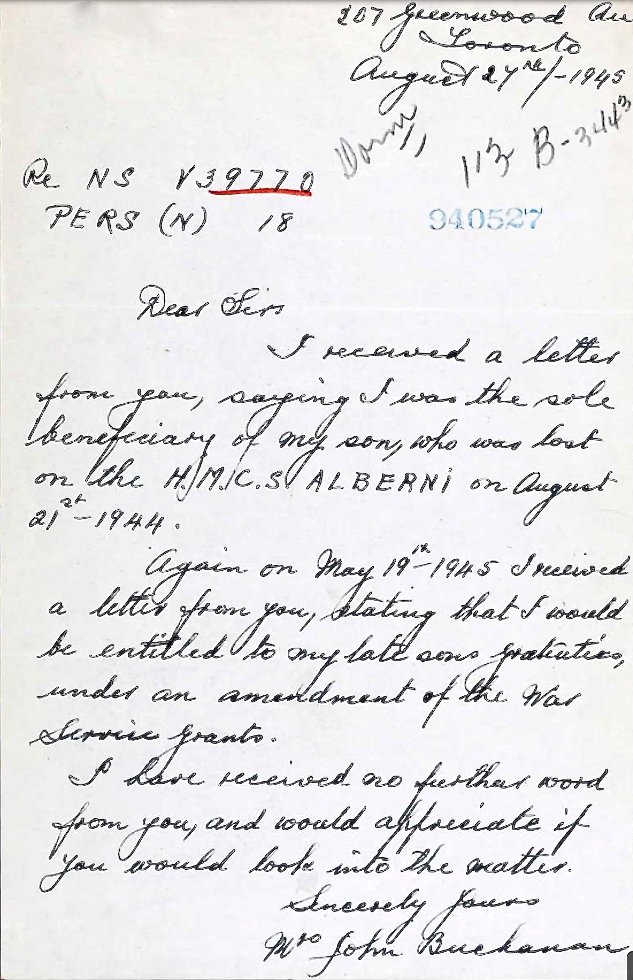 207 Greenwood Av
Toronto
August 27nd/-1945
113 B-3443
Re NS V39770
PERS (N) 18
940527
Dear Sirs
I received a letter
from you, saying I was the sole
beneficiary of my son, who was lost
on the H.M.C.S ALBERNI on August
21st-1944.
Again on May 19th-1945 I received
a letter from you, stating that I would
be entitled to my late sons gratuities,
under an amendment of the War
Service grants.
I have received no further word
from you, and would appreciate if
you would look into the matter.
Sincerely Yours
Mrs John Buchanan